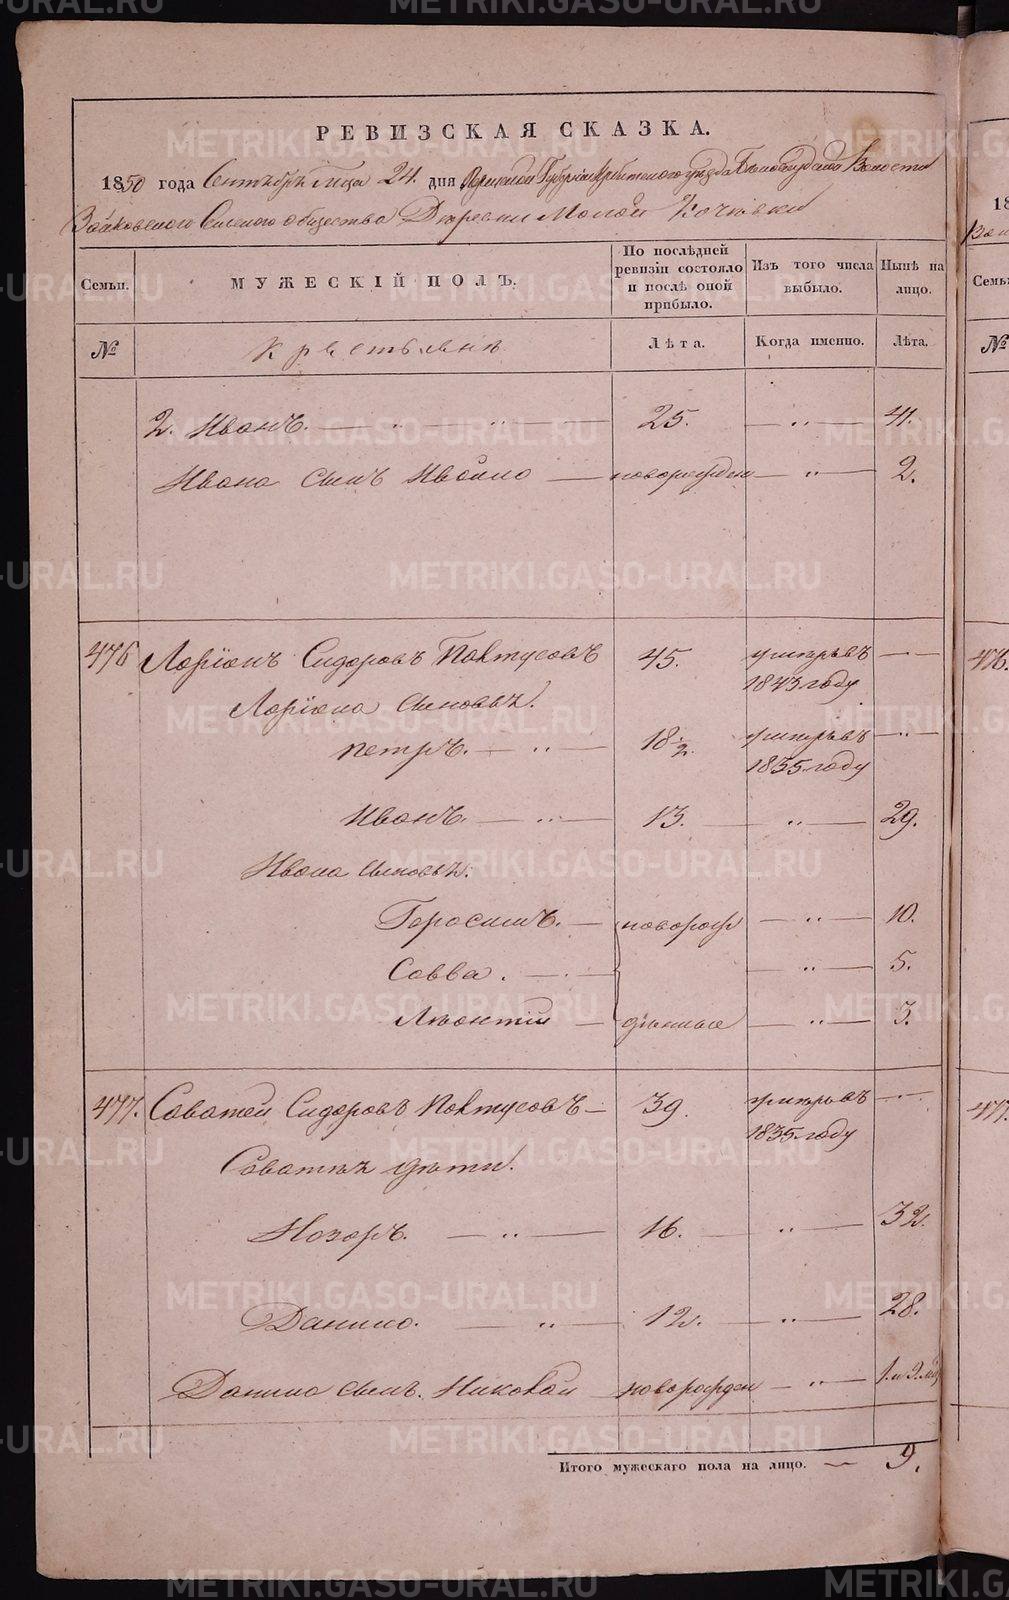 РЕВИЗСКАЯ СКАЗКА.
1850 года Сентября м҃ца 24. дня Пермской Губернiи Ирбитского уѣзда Белослудской Волости
Зайковского Сельского общества Деревни Малой Кочевки
Семьи. МУЖЕСКІЙ ПОЛЪ. По послѣдней ревизіи состояло и послѣ оной прибыло. Изъ того числа выбыло. Нынѣ на лицо.
№ Крестьяне Лѣта. Когда именно. Лѣта.
2. Иванъ. — „ — „ — 25. — „ — 41.
Ивана сынъ Иваило — новорожден — „ — 2.
476 Ларiонъ Сидоровъ Пактусовъ 45. умеръ въ 1843 году — „ —
Ларiона сыновья.
Петръ. — „ — 18 ½. умеръ въ 1835 году — „ —
Иванъ. — „ — 13. — „ — 29.
Ивана сыновья.
Герасимъ. — новорож — „ — 10.
Савва. — „ — 5.
Леонтiй — денные — „ — 3.
477. Саватей Сидоровъ Пактусовъ — 39. умеръ въ 1835 году — „ —
Саватея дети.
Назаръ. — „ — 16. „ — 32.
Данило. — „ — 12. — „ — 28.
Данила сынъ. Николай — новорожден — „ — 1. и 9. мѣ
Итого мужескаго пола на лицо. — 9.
18
№
476.
477.
METRIKI.GASO-URAL.RU